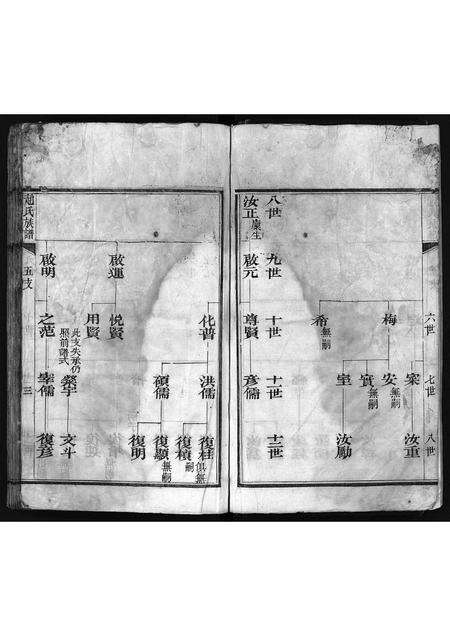 六世
七世
八世
梅
案
汝重
安無嗣
實無嗣
室
汝勵
希無嗣
八世
九世
十世
十一世
十二世
汝正廩生
啟元
尊賢
彥儒
化普
洪儒
復桂俱無
復楨嗣
碩儒
復顯無嗣
復明
啟運
悅賢
用賢
此支失承仍
照前譜式
榮宇
文斗
啟明
之范
宰儒
復彥
趙氏族譜
五支
十三